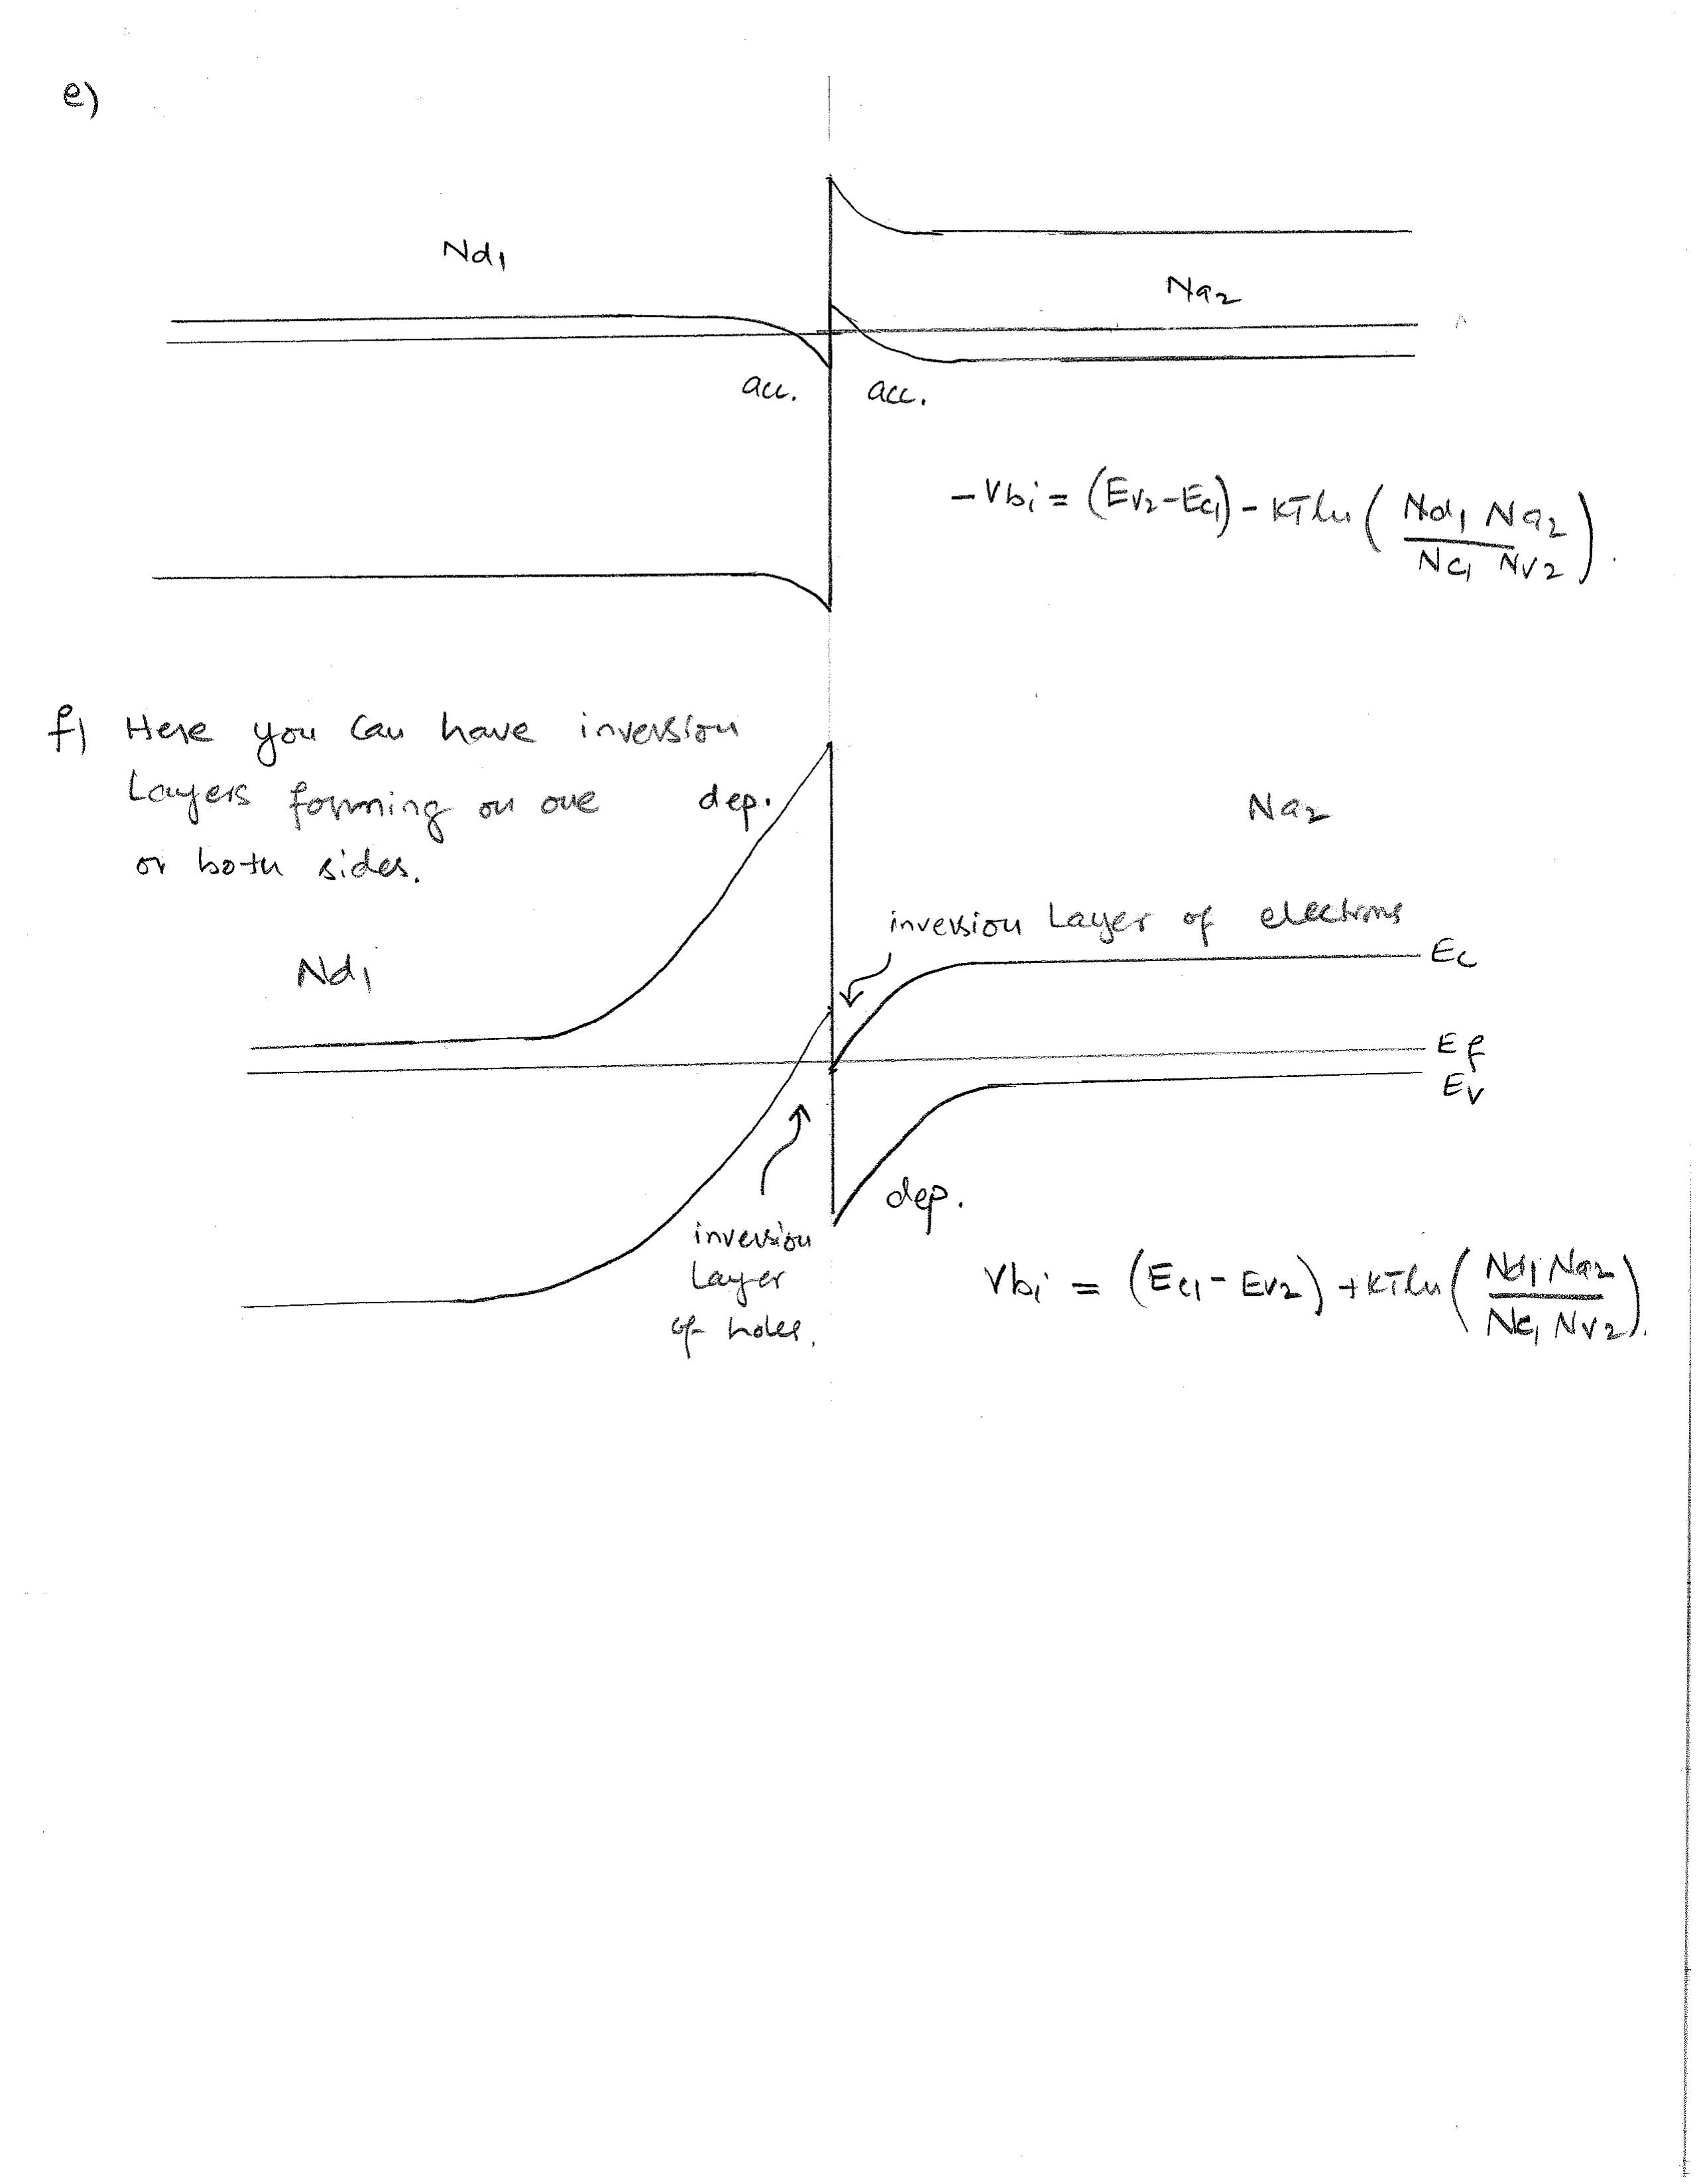 e)
Nd1
Na2
acc. acc.
-Vbi = (Ev2-Ec1) - kT ln ( Nd1 Na2 / Nc1 Nv2 ).
f) Here you can have inversion
Layers forming on one
or both sides.
dep.
Na2
inversion Layer of electrons
Ec
Nd1
Ef
Ev
dep.
inversion
Layer
of holes.
Vbi = (Ec1 - Ev2) + kT ln ( Nd1 Na2 / Nc1 Nv2 ).